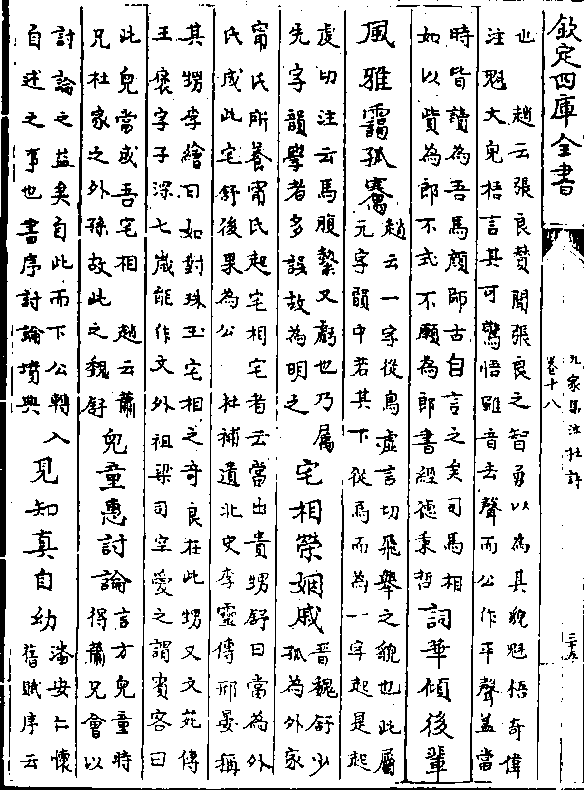 欽定四庫全書
九家集注杜詩
卷十八
也　趙云張良贊聞張良之智勇以為其貌魁梧奇偉
注魁大皃梧言其可驚悟雖音去聲而公作平聲蓋當
時皆讀為吾馬顔師古自言之矣司馬相
如以貲為郎不式不願為郎書經德秉哲
詞華傾後輩
風雅靄孤騫
趙云一字從鳥虛言切飛舉之貌也此屬
元字韻中若其下從馬而為一字起是起
虔切注云馬腹縶又虧也乃屬
先字韻學者多誤故為明之
宅相榮姻戚
晉魏舒少
孤為外家
甯氏所養甯氏起宅相宅者云當出貴甥舒曰當為外
氏成此宅舒後果為公　杜補遺北史李靈傳邢晏稱
其甥李繪曰如對珠玉宅相之奇良在此甥又文苑傳
王褒字子深七歳能作文外祖梁司空愛之謂賓客曰
此兒當成吾宅相　趙云蕭
兄杜家之外孫故此之魏舒
兒童惠討論
言方兒童時
得蕭兄會以
討論之益矣自此而下公轉
自述之事也書序討論墳典
入
見知真自幼
潘安仁懷
舊賦序云